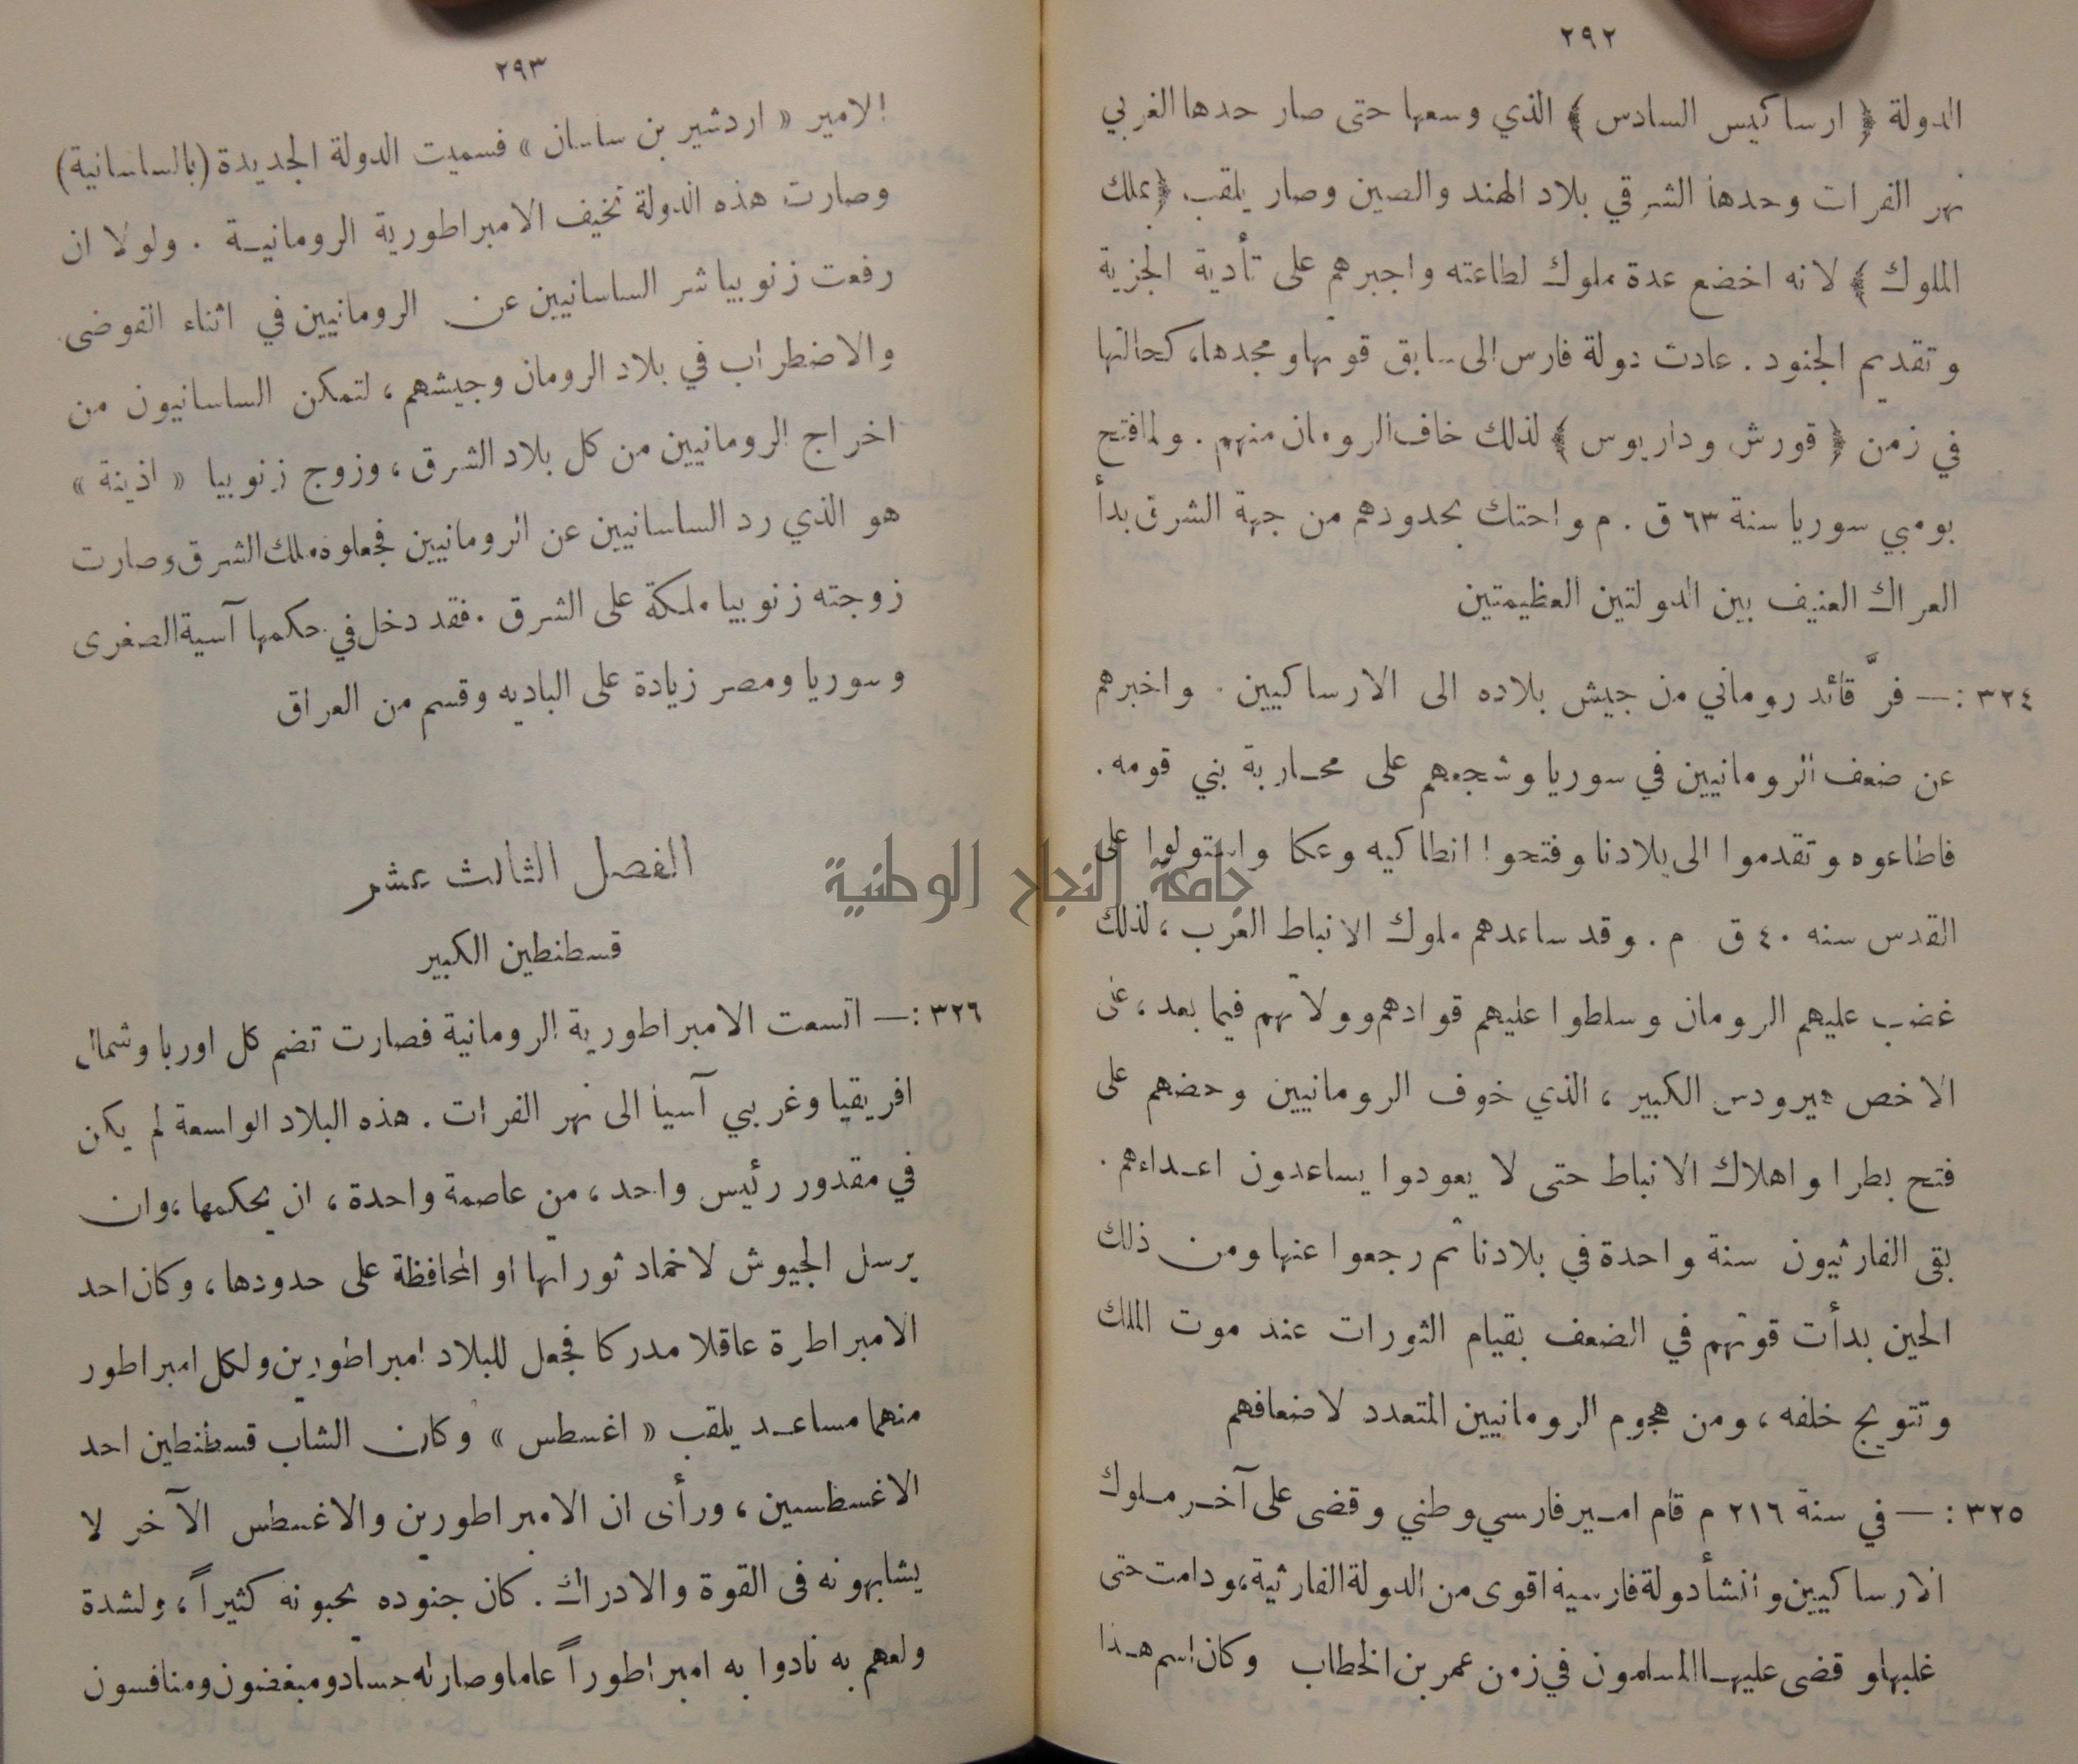 ٢٩٢
الدولة ﴿ ارساكيس السادس ﴾ الذي وسعها حتى صار حدها الغربي
نهر الفرات وحدها الشرقي بلاد الهند والصين وصار يلقب ﴿ بملك
الملوك ﴾ لانه اخضع عدة ملوك لطاعته واجبرهم على تأدية الجزية
وتقديم الجنود . عادت دولة فارس الى سابق قوتها ومجدها، كحالتها
في زمن ﴿ قورش وداريوس ﴾ لذلك خاف الرومان منهم . ولما فتح
بومبي سوريا سنة ٦٣ ق . م واحتك بحدودهم من جهة الشرق بدأ
العراك العنيف بين الدولتين العظيمتين
٣٢٤ :— فرَّ قائد روماني من جيش بلاده الى الارساكيين . واخبرهم
عن ضعف الرومانيين في سوريا وشجعهم على محاربة بني قومه .
فاطاعوه وتقدموا الى بلادنا وفتحوا انطاكيه وعكا واستولوا على
القدس سنه ٤٠ ق م . وقد ساعدهم ملوك الانباط العرب ، لذلك
غضب عليهم الرومان وسلطوا عليهم قوادهم وولاتهم فيما بعد ، على
الاخص هيرودس الكبير ، الذي خوف الرومانيين وحضهم على
فتح بطرا واهلاك الانباط حتى لا يعودوا يساعدون اعداءهم .
بقى الفارثيون سنة واحدة في بلادنا ثم رجعوا عنها ومن ذلك
الحين بدأت قوتهم في الضعف بقيام الثورات عند موت الملك
وتتويج خلفه ، ومن هجوم الرومانيين المتعدد لاضعافهم
٣٢٥ :— في سنة ٢١٦ م قام امير فارسي وطني وقضى على آخر ملوك
الارساكيين وانشأ دولة فارسية اقوى من الدولة الفارثية، ودامت حتى
غلبها وقضى عليها المسلمون في زمن عمر بن الخطاب وكان اسم هذا
٢٩٣
الامير « اردشير بن ساسان » فسميت الدولة الجديدة (بالساسانية)
وصارت هذه الدولة تخيف الامبراطورية الرومانية . ولولا ان
رفعت زنوبيا شر الساسانيين عن الرومانيين في اثناء الفوضى
والاضطراب في بلاد الرومان وجيشهم ، لتمكن الساسانيون من
اخراج الرومانيين من كل بلاد الشرق ، وزوج زنوبيا « اذينة »
هو الذي رد الساسانيين عن الرومانيين فجعلوه ملك الشرق وصارت
زوجته زنوبيا ملكة على الشرق . فقد دخل في حكمها آسية الصغرى
وسوريا ومصر زيادة على الباديه وقسم من العراق
الفصل الثالث عشر
قسطنطين الكبير
٣٢٦ :— اتسعت الامبراطورية الرومانية فصارت تضم كل اوربا وشمال
افريقيا وغربي آسيا الى نهر الفرات . هذه البلاد الواسعة لم يكن
في مقدور رئيس واحد ، من عاصمة واحدة ، ان يحكمها ، وان
يرسل الجيوش لاخماد ثوراتها او المحافظة على حدودها ، وكان احد
الامبراطرة عاقلا مدركا فجعل للبلاد امبراطورين ولكل امبراطور
منهما مساعد يلقب « اغسطس » وكان الشاب قسطنطين احد
الاغسطسين ، ورأى ان الامبراطورين والاغسطس الآخر لا
يشابهونه فى القوة والادراك . كان جنوده يحبونه كثيراً ، ولشدة
ولعهم به نادوا به امبراطوراً عاما وصار له حساد ومبغضون ومنافسون
جامعة النجاح الوطنية